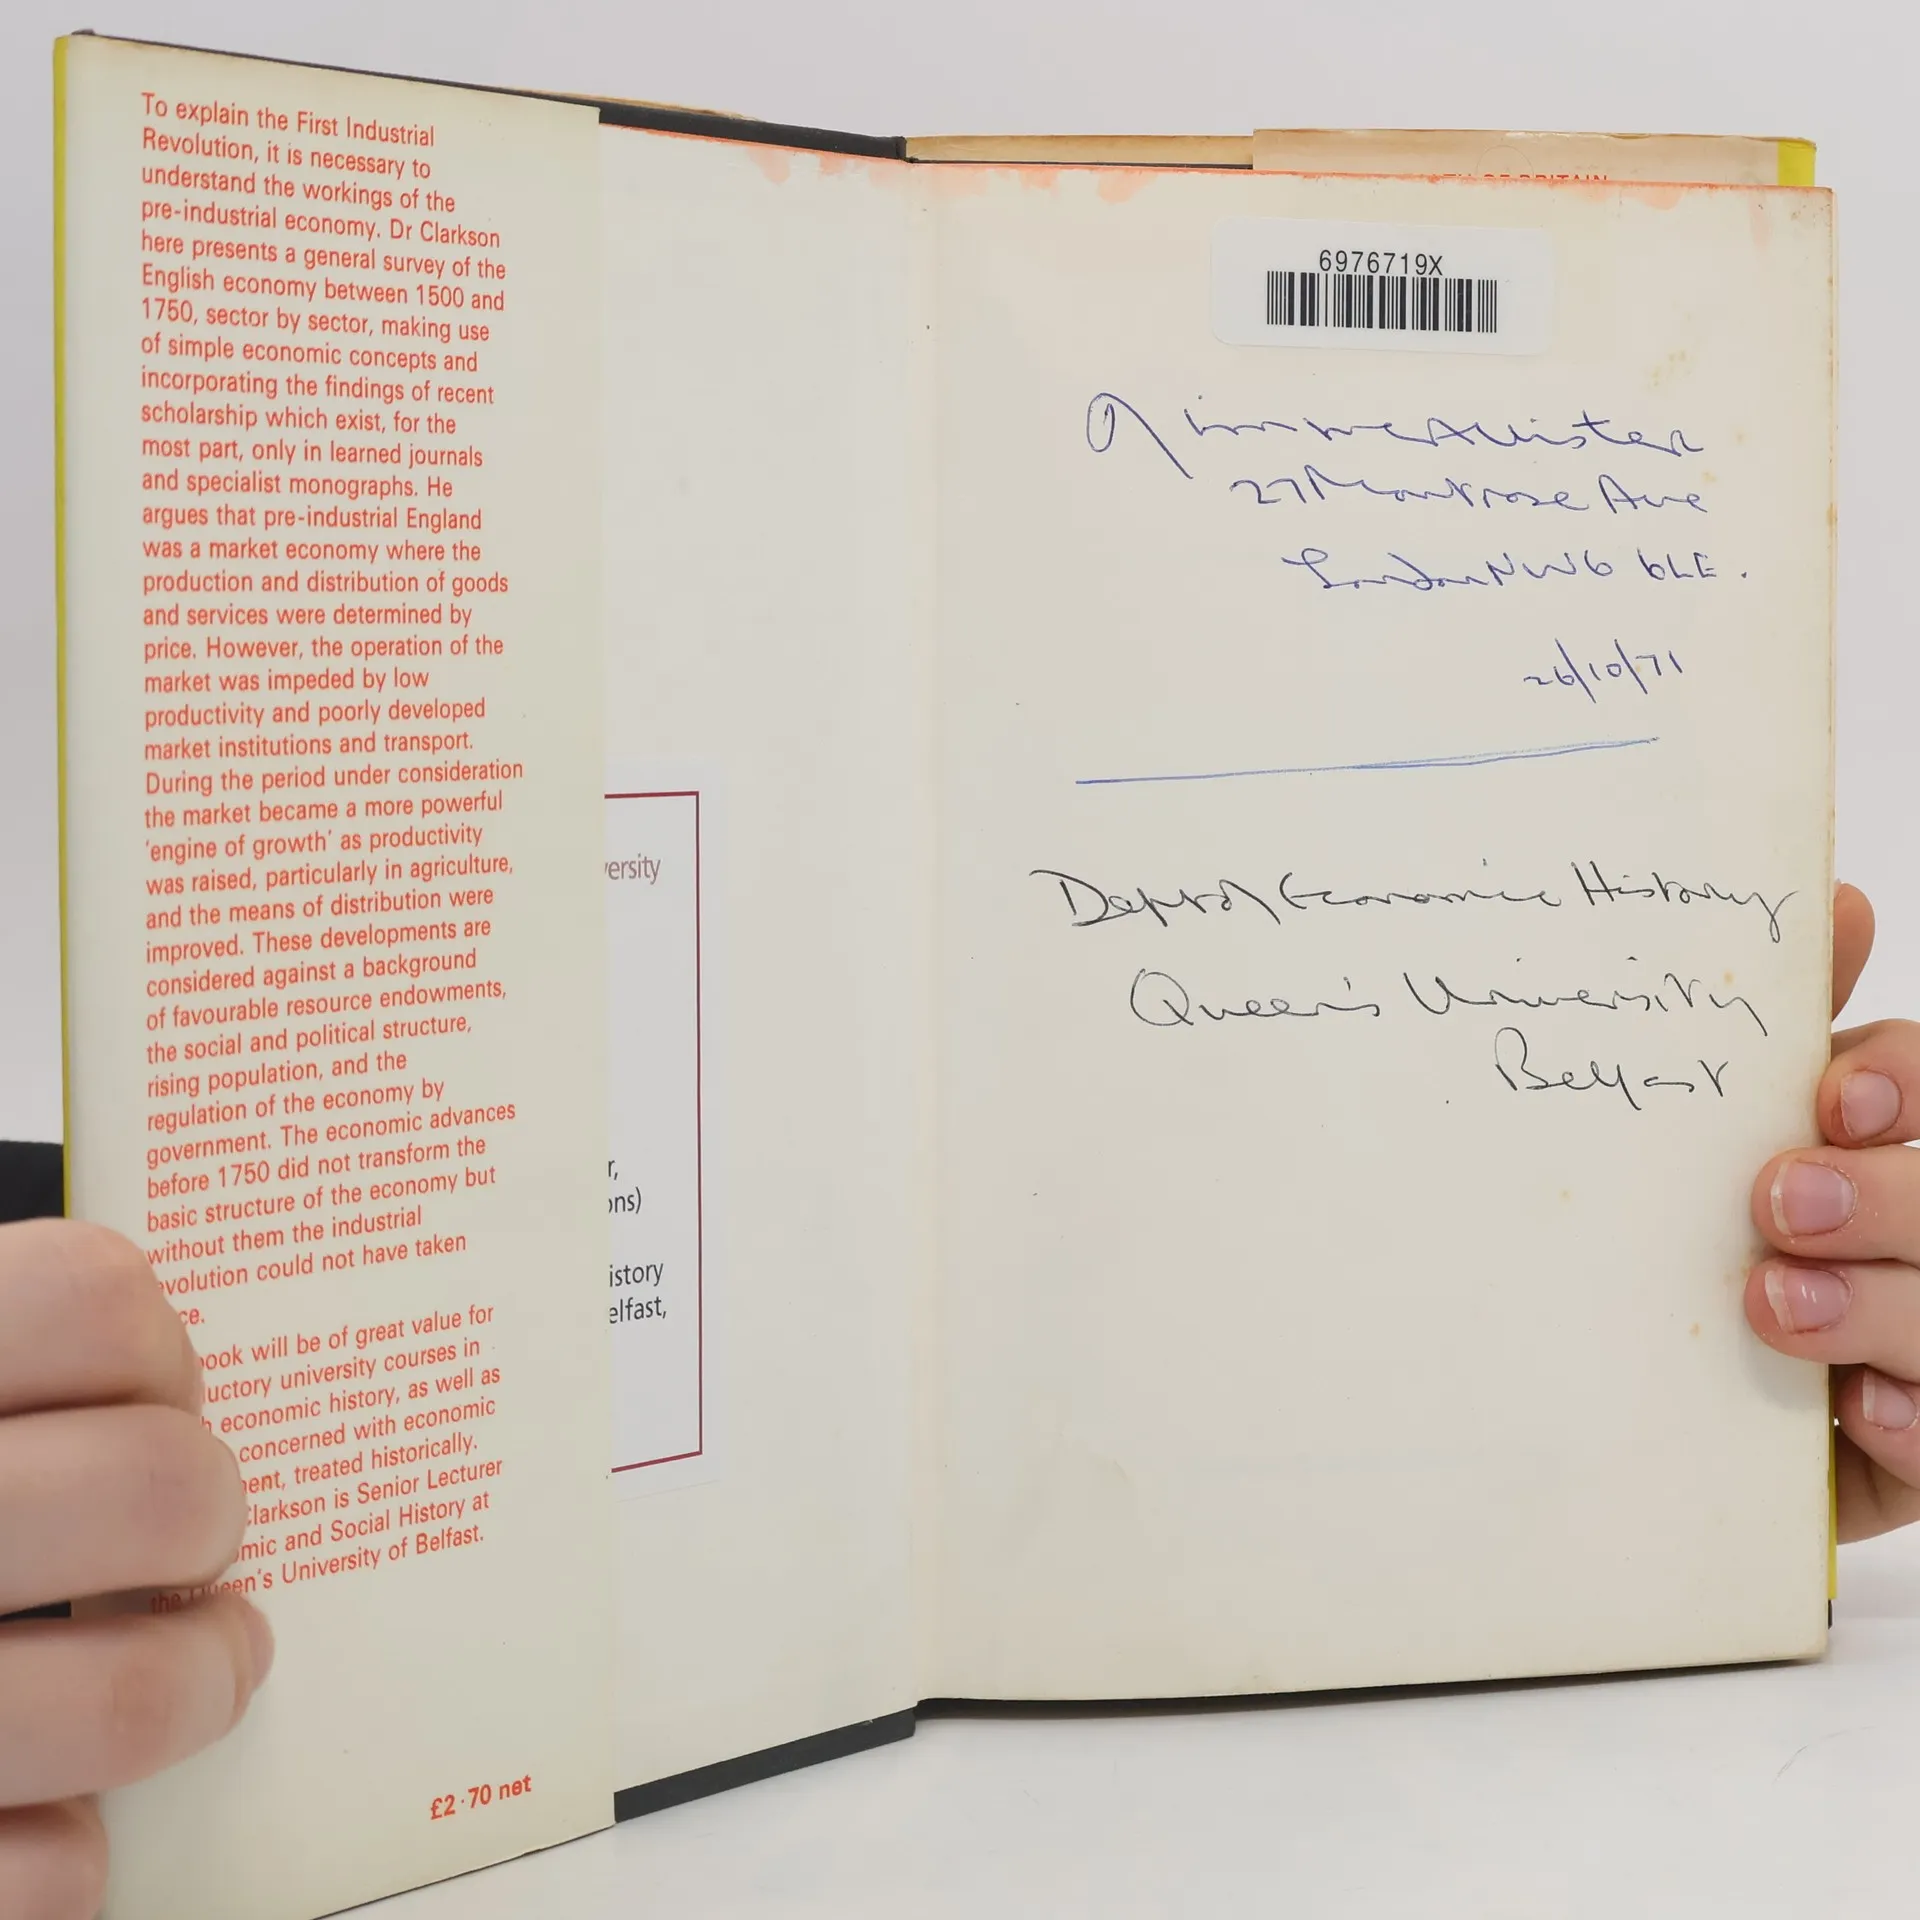 To explain the First Industrial
Revolution, it is necessary to
understand the workings of the
pre-industrial economy. Dr Clarkson
here presents a general survey of the
English economy between 1500 and
1750, sector by sector, making use
of simple economic concepts and
incorporating the findings of recent
scholarship which exist, for the
most part, only in learned journals
and specialist monographs. He
argues that pre-industrial England
was a market economy where the
production and distribution of goods
and services were determined by
price. However, the operation of the
market was impeded by low
productivity and poorly developed
market institutions and transport.
During the period under consideration
the market became a more powerful
'engine of growth' as productivity
was raised, particularly in agriculture,
and the means of distribution were
improved. These developments are
considered against a background
of favourable resource endowments,
the social and political structure,
rising population, and the
regulation of the economy by
government. The economic advances
before 1750 did not transform the
basic structure of the economy but
without them the industrial
evolution could not have taken
ce.
ook will be of great value for
uctory university courses in
h economic history, as well as
concerned with economic
ent, treated historically.
Clarkson is Senior Lecturer
omic and Social History at
the Queen's University of Belfast.
£2·70 net
versity
r,
ons)
istory
elfast,
OF BRITAIN
6976719X
27 Montrose Ave
London NW6 6LE.
26/10/71
Dept of Economic History
Queen's University
Belfast